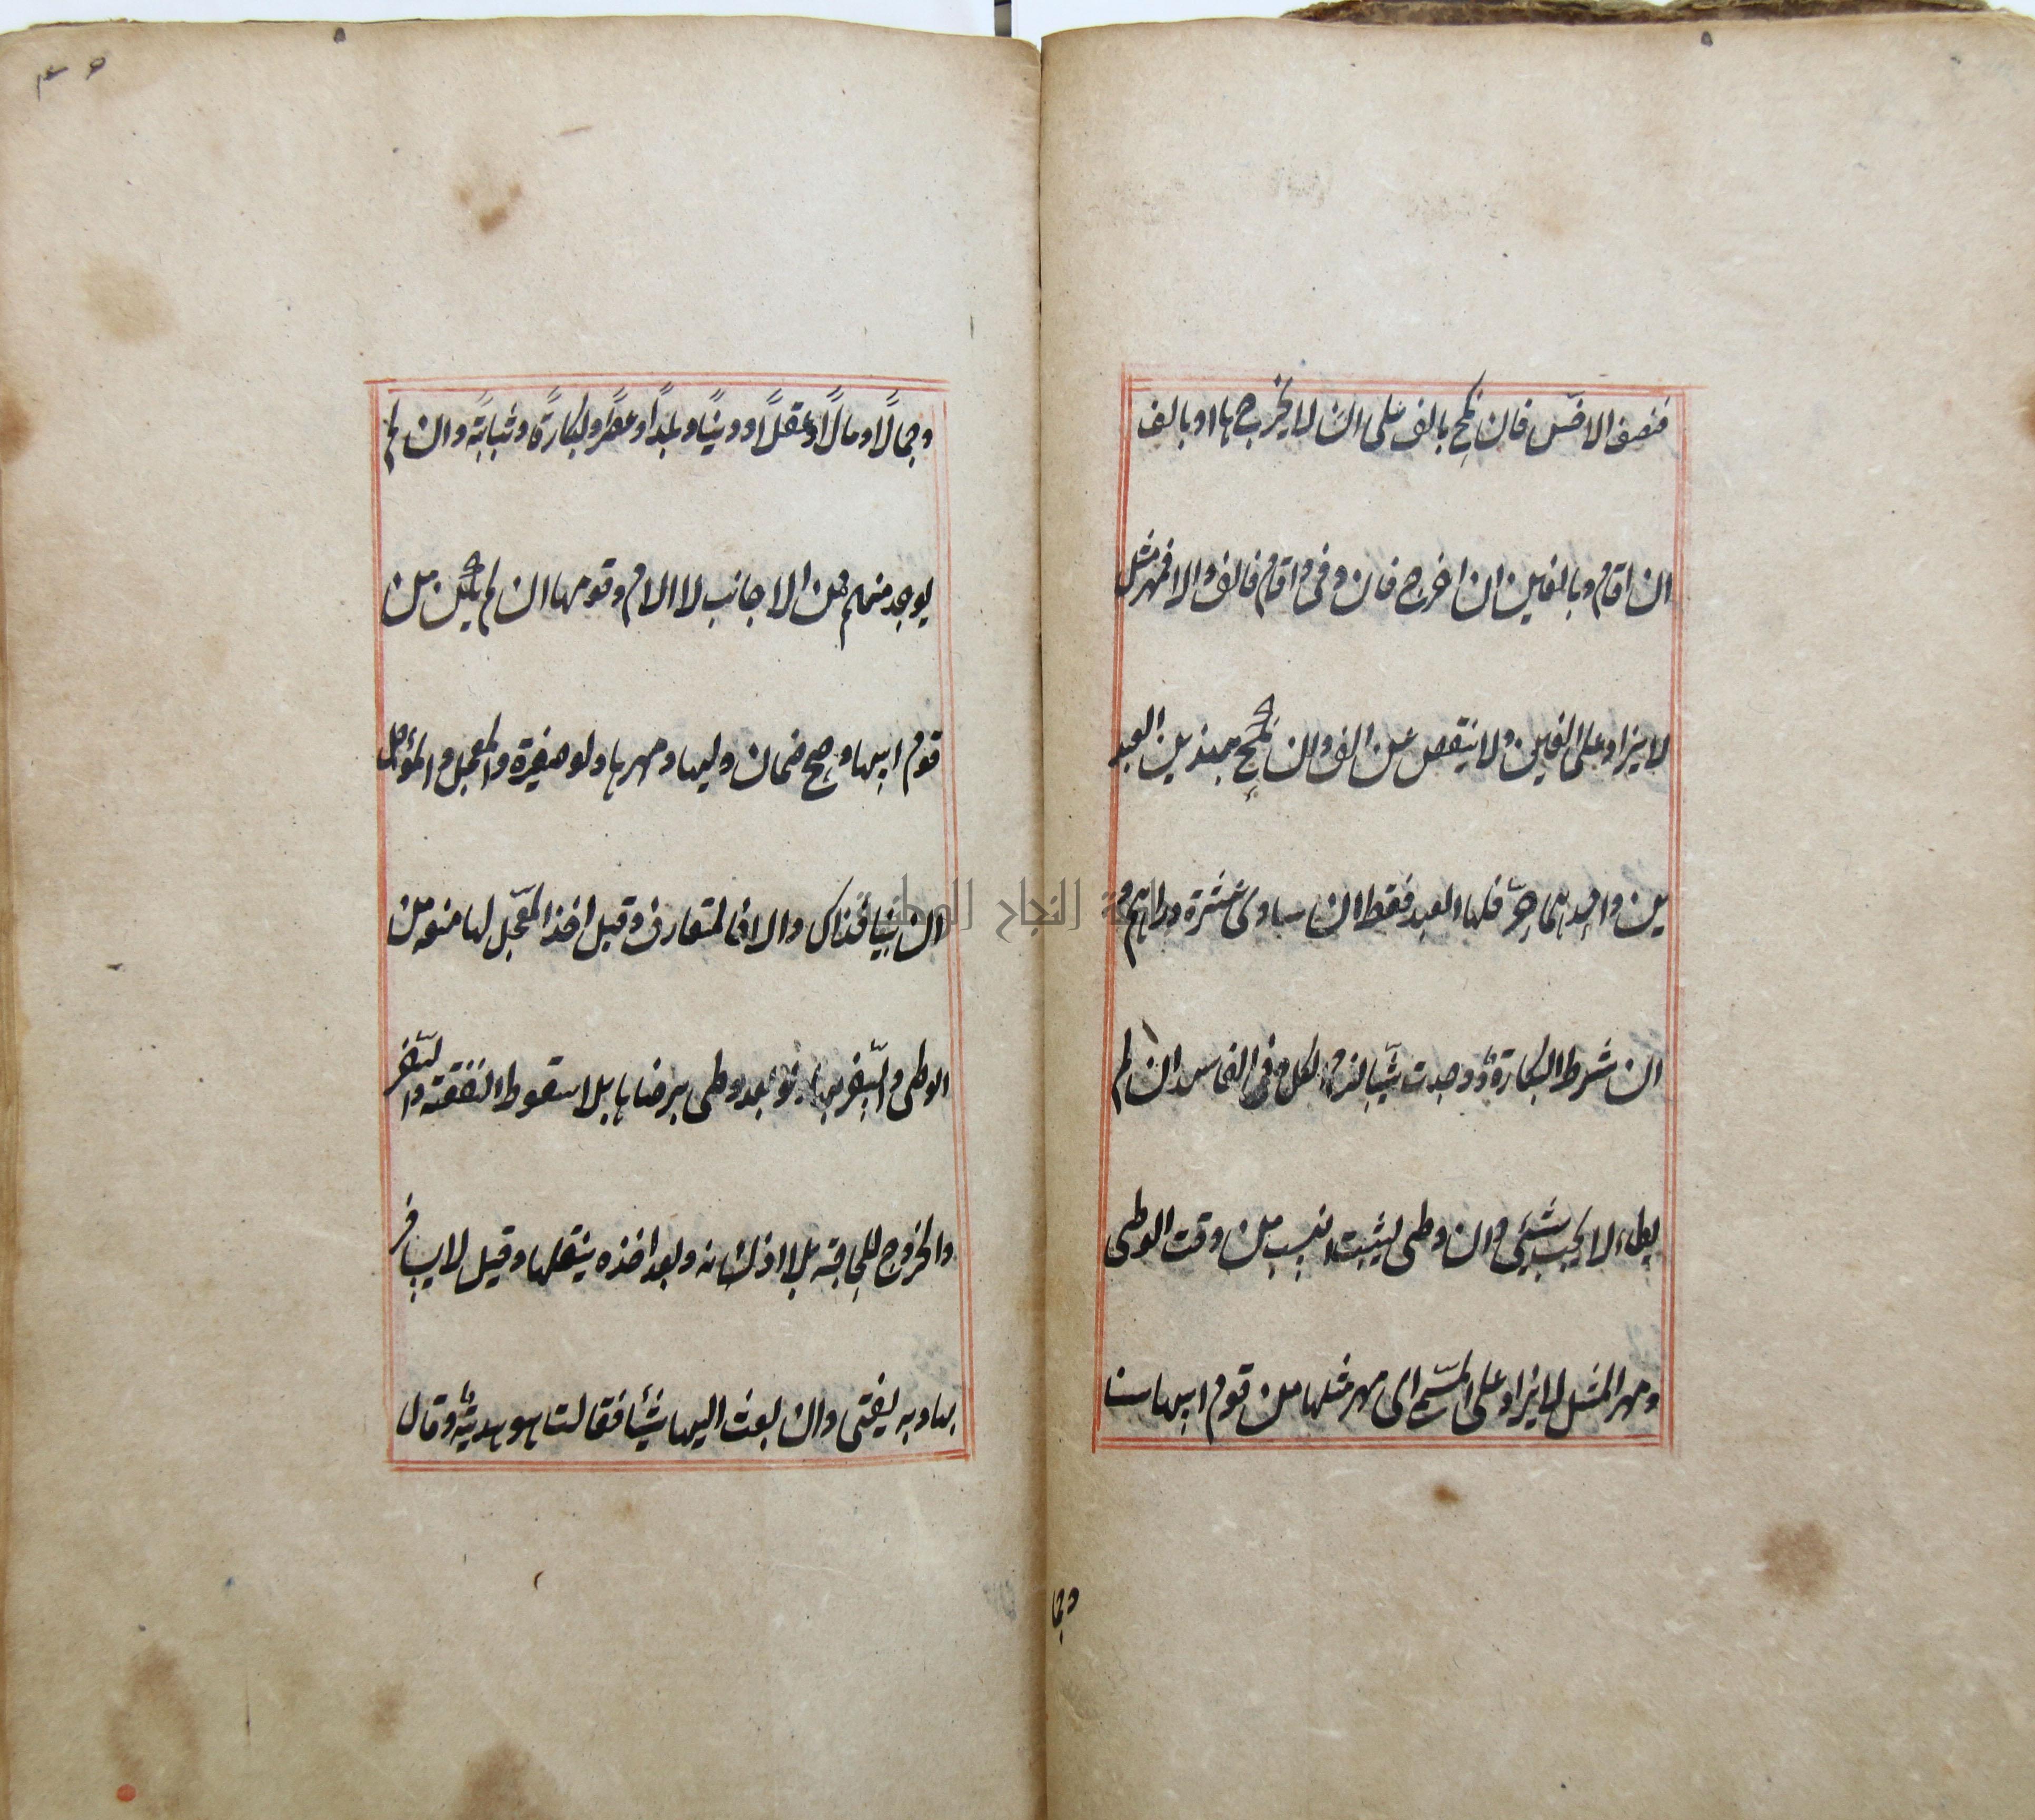 فنصف الاخس فان نكح بالف على ان لا يخرجها او بالف
ان اقام وبالفين ان اخرج فان وفى واقام فالف والا فمهر مثل
لا يزاد على الفين ولا ينقص عن الف وان نكح بهذين العبد
ين واحدهما حر فلها العبد فقط ان ساوى عشرة دراهم و
ان شرط البكارة ووجدت ثيبا لزم الكل وفى الفاسد ان لم
يطاء لا يجب شيئ وان وطى يثبت النسب من وقت الوطى
ومهر المثل لا يزاد على المسمى اى مهر مثلها من قوم ابيها سنا
وجا
٣٥
وجمالًا ومالًا وعقلًا ودينًا وبلدًا وعصرًا وبكارةً وثيابةً وان لم
يوجد منهم فمن الاجانب لا الام وقومها ان لم يكن من
قوم ابيها وصح ضمان وليها ومهرها ولو صغيرة والمعجل والمؤجل
ان بينا فذاك والا فالمتعارف وقبل اخذ المعجل لها منعه من
الوطى والسفر بها ولو بعد وطى برضاها بلا سقوط النفقة والسفر
والخروج للحاجة بلا اذنه وبعد اخذه ينقلها وقيل لا يسافر
بها وبه يفتى وان بعث اليها شيئا فقالت هو هدية وقال
النجاح الوطنية